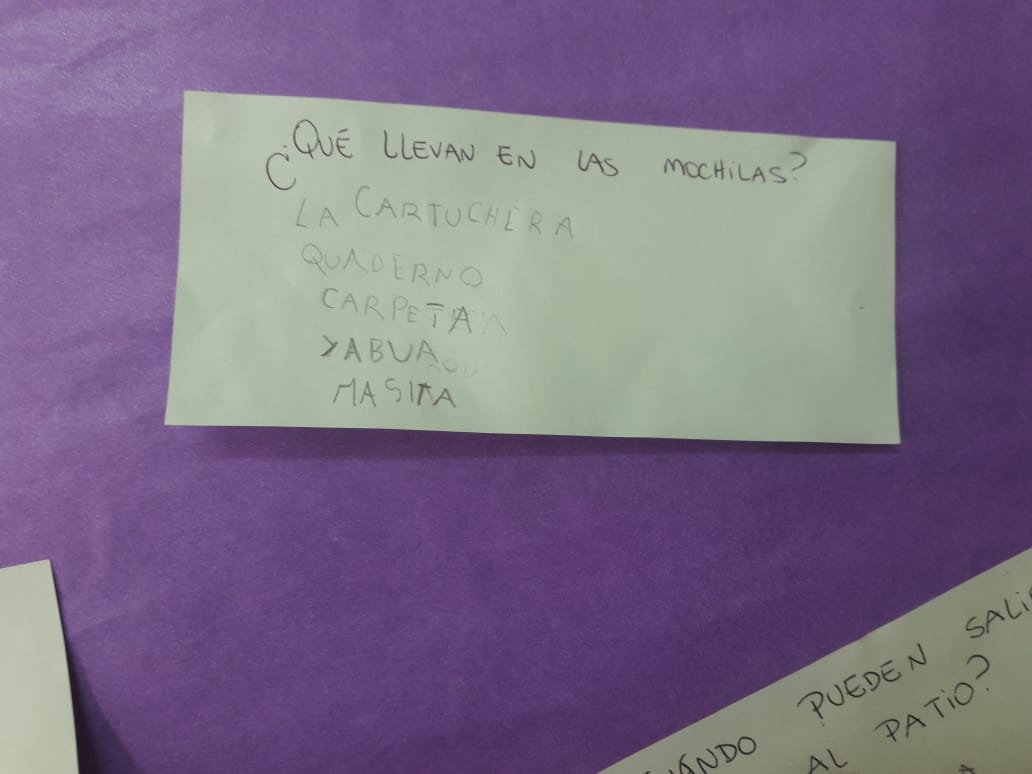 ¿QUÉ LLEVAN EN LAS MOCHILAS?
LA CARTUCHERA
QUADERNO
CARPETA
YABUA
MASITA
PUEDEN
AL PATIO?